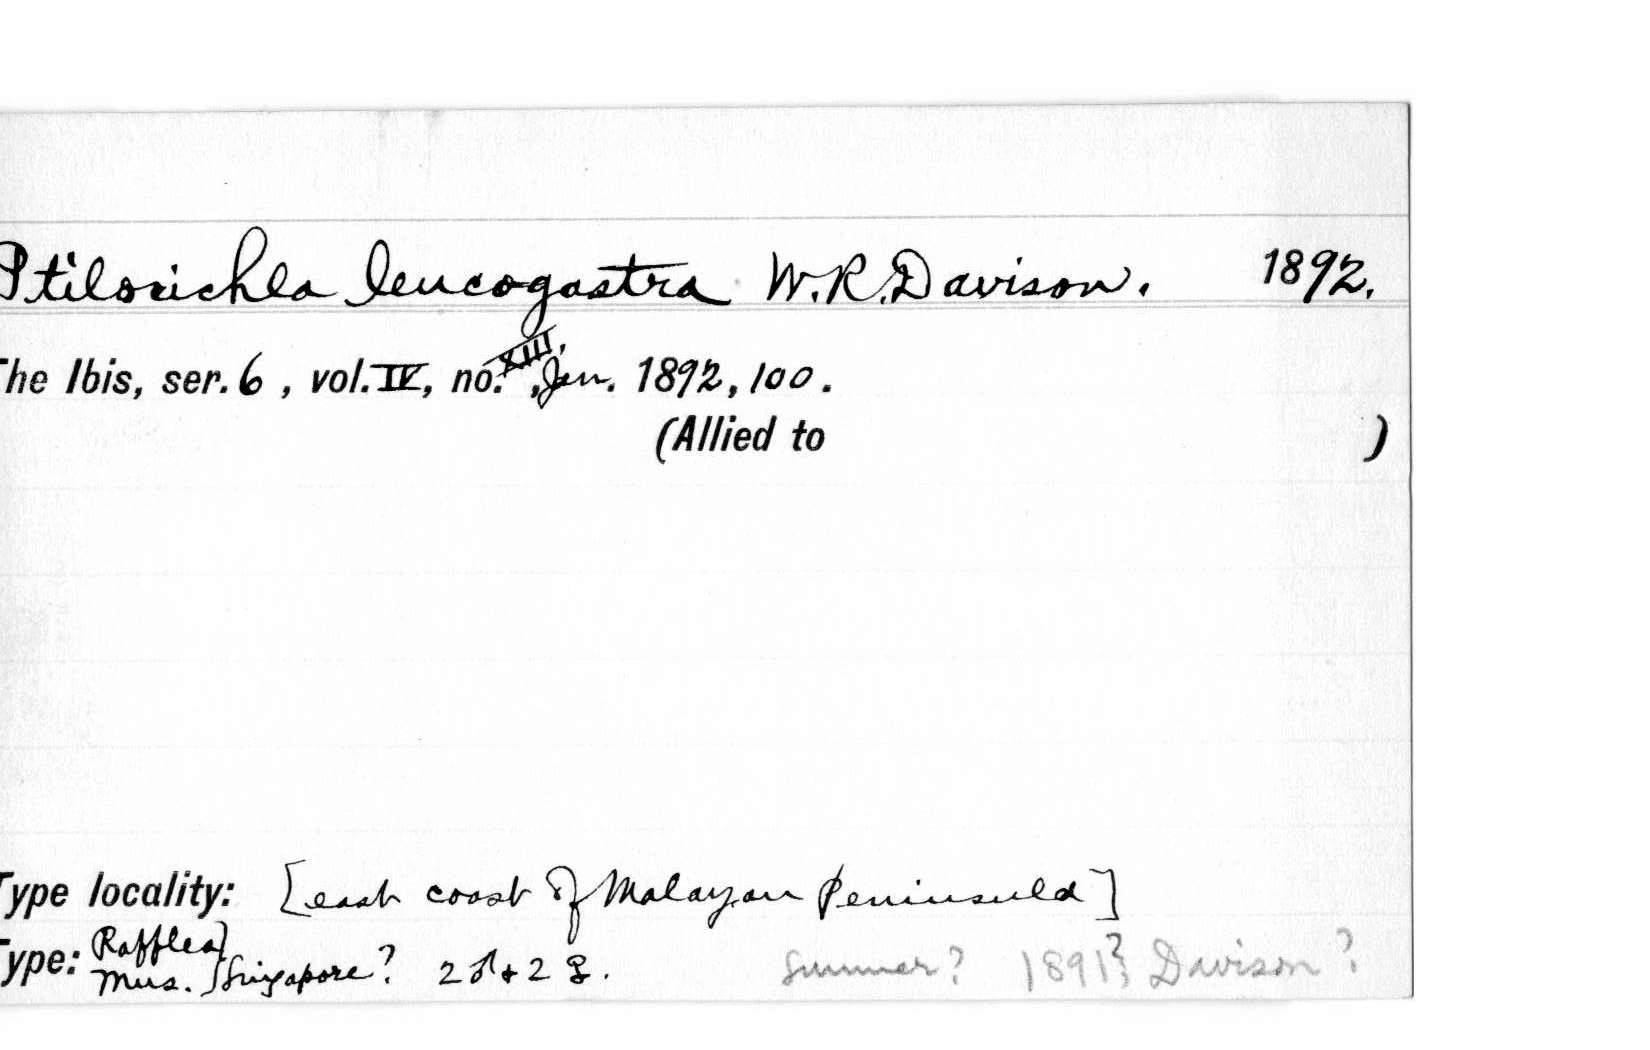 Ptilocichla leucogastra W.R.Davison. 1892.
The Ibis, ser. 6, vol. IV, no. XIII, Jan. 1892, 100.
(Allied to )
Type locality: [east coast of Malayan Peninsula]
Type: Raffles Mus. Singapore? 2♂+2♀. Summer? 1891?; Davison?